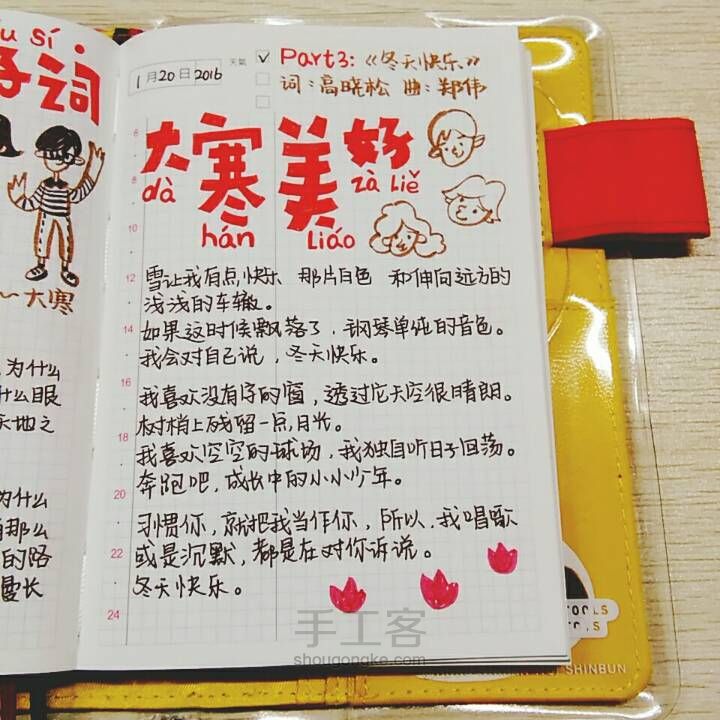 u sí
好词
~大寒
为什么
什么眼
天地之
为什么
有那么
的路
曼长
天氣
1月20日2016
Part3:《冬天快乐》
词:高晓松 曲:郑伟
大寒美好
dà hán liáo zà liě
雪让我有点快乐 那片白色 和伸向远方的
浅浅的车辙。
如果这时候飘落了,钢琴单纯的音色。
我会对自己说,冬天快乐。
我喜欢没有你的窗,透过它天空很晴朗。
树梢上残留一点月光。
我喜欢空空的球场,我独自听日子回荡。
奔跑吧,成长中的小小少年。
习惯你,就把我当作你,所以,我唱歌
或是沉默,都是在对你诉说。
冬天快乐。
6
8
10
12
14
16
18
20
22
24
手工客
shougongke.com
TOOLS
SHINBUN